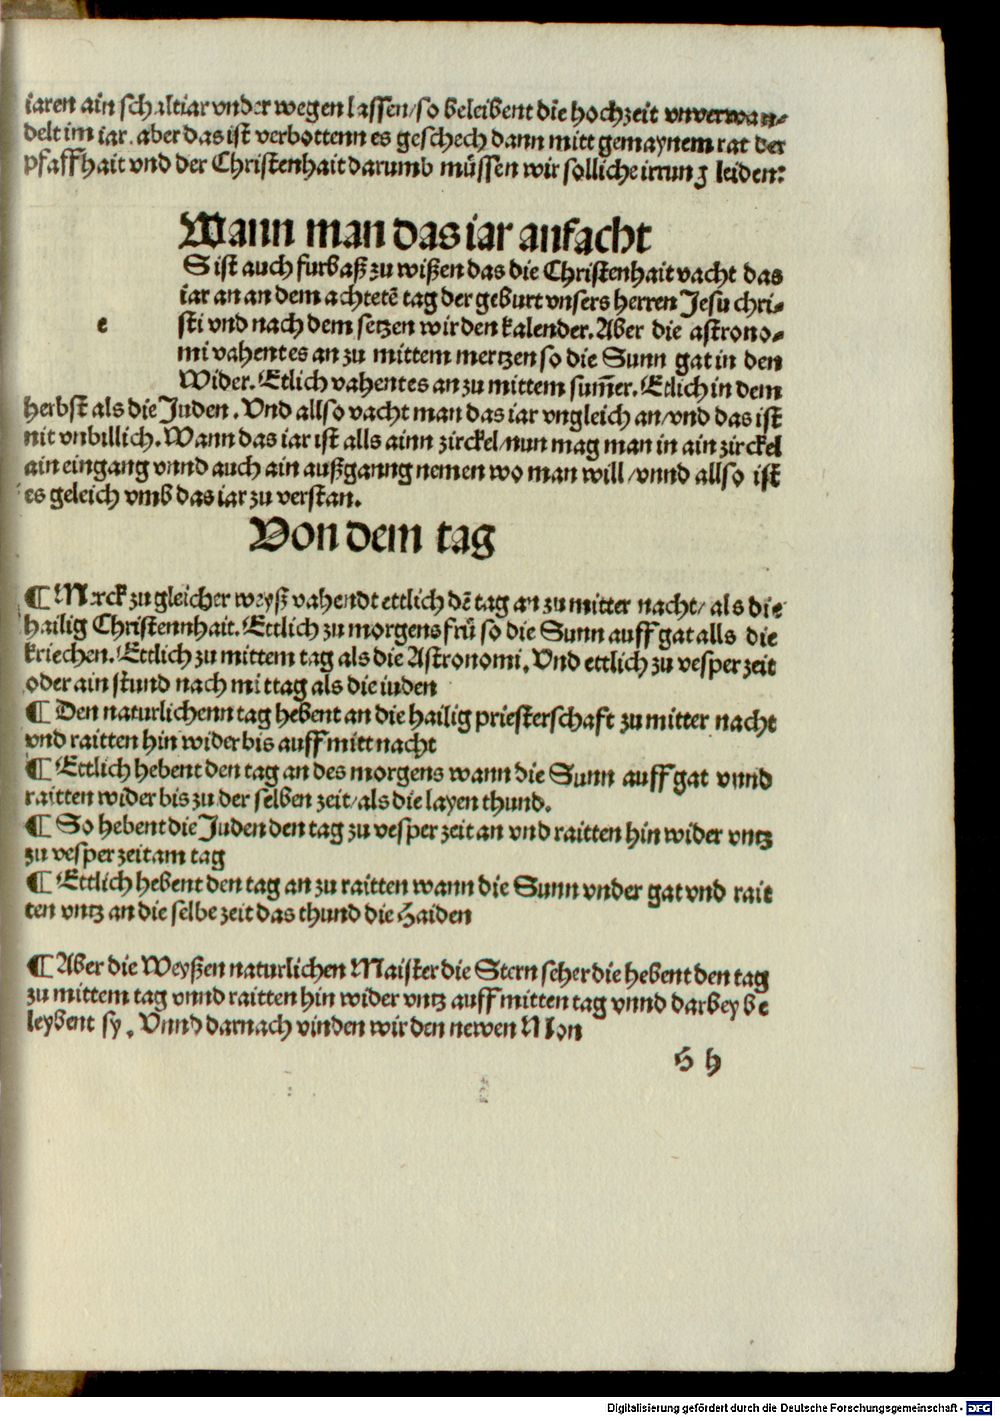 iaren ain schaltiar vnder wegen lassen/so beleibent die hochzeit vnverwan-
delt im iar. aber das ist verbottenn es geschech dann mitt gemaynem rat der
pfaffhait vnd der Christenhait darumb müssen wir solliche irrung leiden:
Wann man das iar anfacht
S ist auch furbaß zu wißen das die Christenhait vacht das
iar an an dem achtetē tag der geburt vnsers herren Jesu chri-
e sti vnd nach dem setzen wir den kalender. Aber die astrono-
mi vahent es an zu mittem mertzen so die Sunn gat in den
Wider. Etlich vahent es an zu mittem sum̄er. Etlich in dem
herbst als die Juden. Vnd allso vacht man das iar vngleich an/vnd das ist
nit vnbillich. Wann das iar ist alls ainn zirckel/nun mag man in ain zirckel
ain eingang vnnd auch ain außganng nemen wo man will/vnnd allso ist
es geleich vmb das iar zu verstan.
Von dem tag
¶ Merck zu gleicher weyß vahendt ettlich dē tag an zu mitter nacht/als die
hailig Christennhait. Ettlich zu morgens frü so die Sunn auff gat alls die
kriechen. Ettlich zu mittem tag als die Astronomi. Vnd ettlich zu vesper zeit
oder ain stund nach mittag als die iuden
¶ Den naturlichenn tag hebent an die hailig priesterschaft zu mitter nacht
vnd raitten hin wider bis auff mitt nacht
¶ Ettlich hebent den tag an des morgens wann die Sunn auff gat vnnd
raitten wider bis zu der selben zeit/als die layen thund.
¶ So hebent die Juden den tag zu vesper zeit an vnd raitten hin wider vntz
zu vesper zeit am tag
¶ Ettlich hebent den tag an zu raitten wann die Sunn vnder gat vnd rait
ten vntz an die selbe zeit das thund die Haiden
¶ Aber die Weyßen naturlichen Maister die Stern seher die hebent den tag
zu mittem tag vnnd raitten hin wider vntz auff mitten tag vnnd darbey be
leybent sy. Vnnd darnach vinden wir den newen Mon
H h
Digitalisierung gefördert durch die Deutsche Forschungsgemeinschaft - DFG